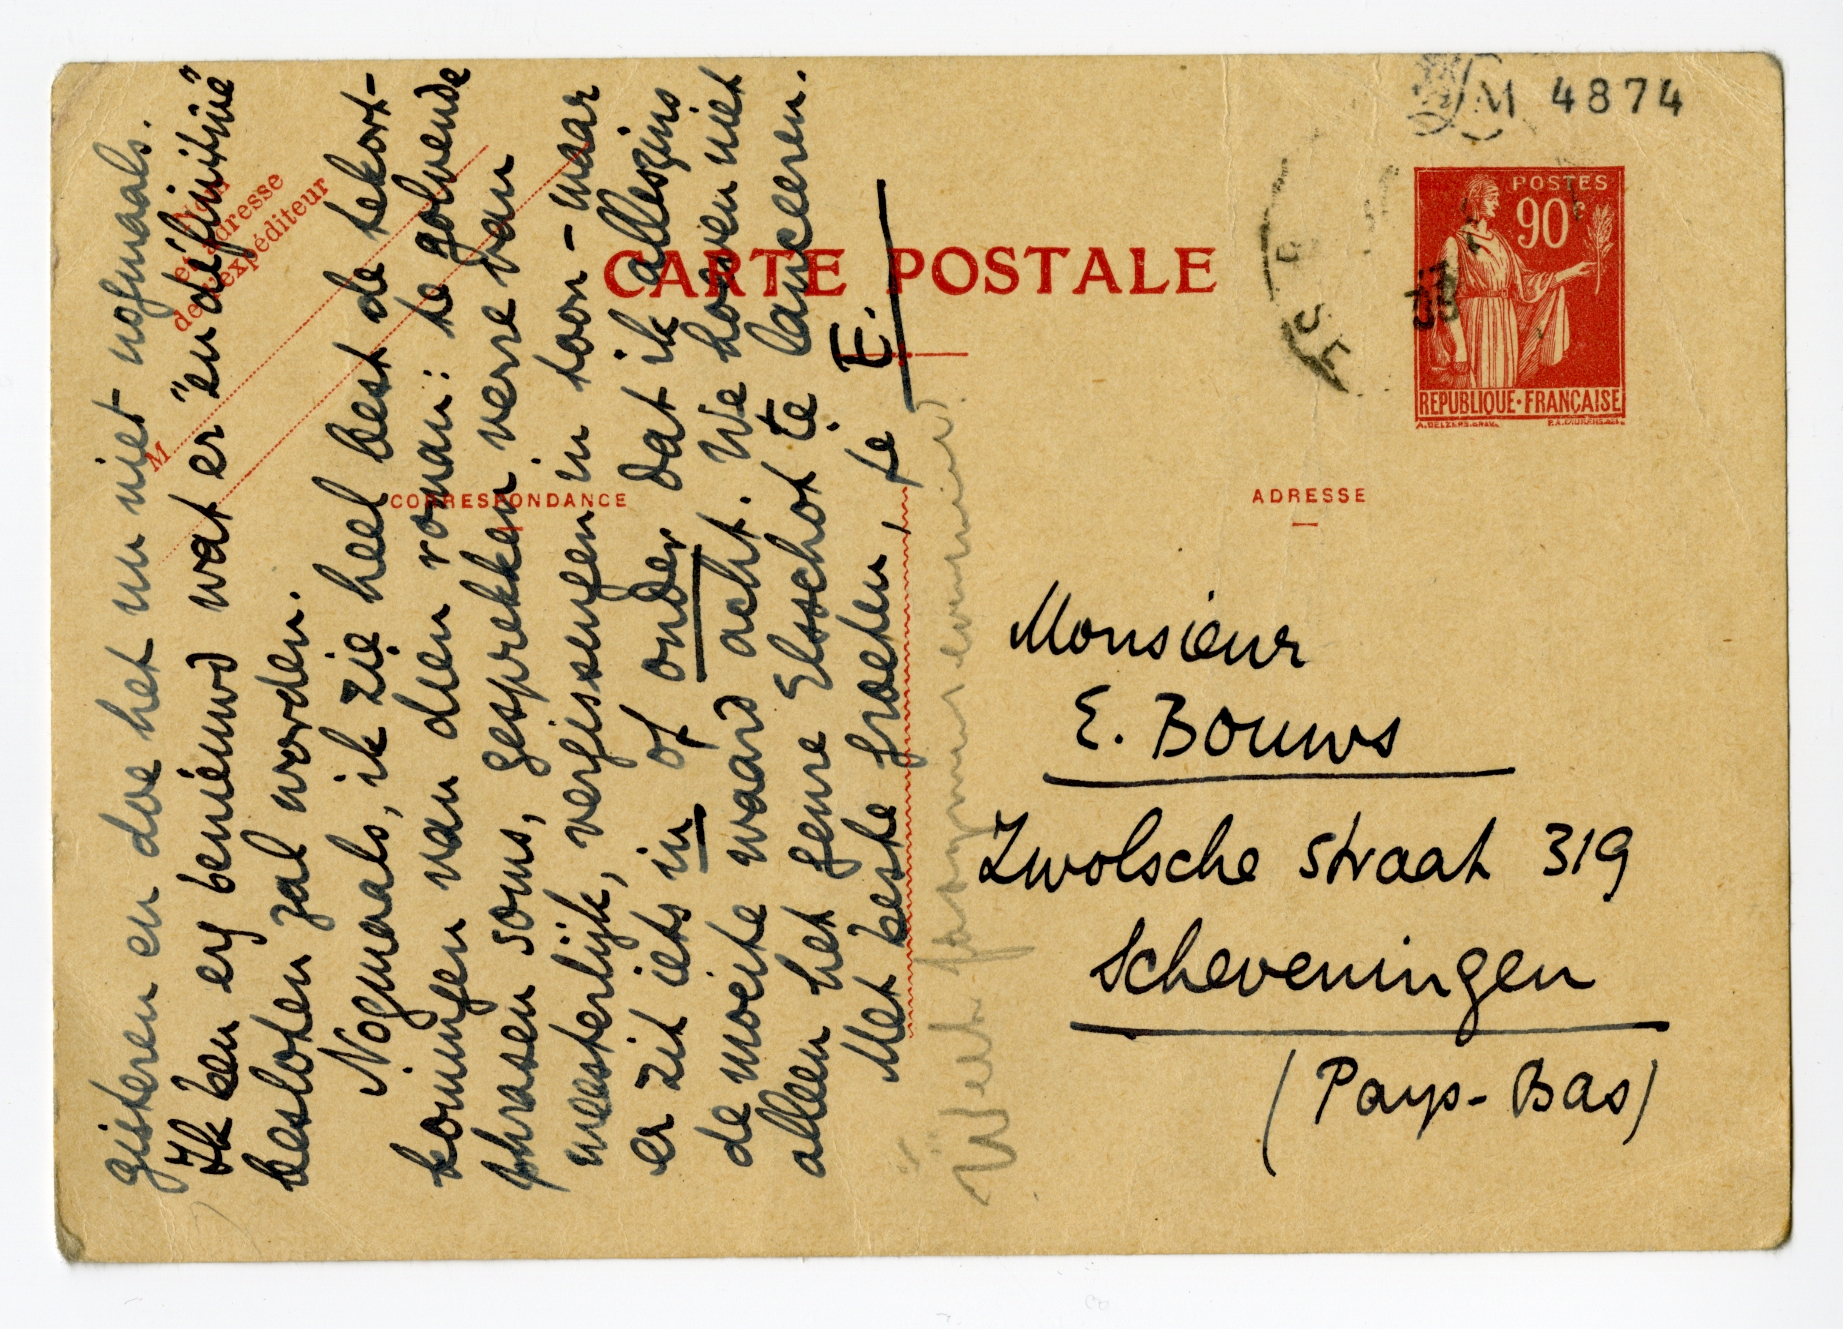 M 4874
POSTES
90c
REPUBLIQUE·FRANÇAISE
CARTE POSTALE
Nom
et adresse
de l'expéditeur
M
CORRESPONDANCE
ADRESSE
gisteren en doe het nu niet nogmaals.
Ik ben erg benieuwd wat er "en définitive"
besloten zal worden.
Nogmaals, ik zie heel best de tekort-
komingen van dien roman: te golvende
phrasen soms, gesprekken verre van
meesterlijk, vergissingen in toon – maar
er zit iets in of onder dat ik alleszins
de moeite waard acht. We hoeven niet
alleen het genre Elsschot te lanceeren.
Met beste groeten, je E.
Monsieur
E. Bouws
Zwolsche straat 319
Scheveningen
(Pays-Bas)